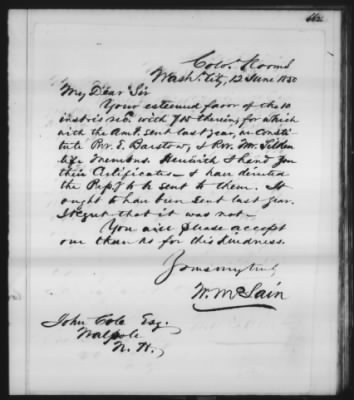 662
Colo. Rooms
Wash. City, 12 June 1850
My Dear Sir
Your esteemed favor of the 10
inst. is rec. with $ therein, for which
with the Amt. sent last year, we consti-
tute Rev. E. Barstow, & Rev. Mr. Tilden
life members. Herewith I hand you
their Certificates. I have directed
the Rep. to be sent to them. It
ought to have been sent last year.
I regret that it was not.
You will please accept
our thanks for this kindness.
Yours very truly
W. McLain
John Cole Esq.
Walpole
N. H.